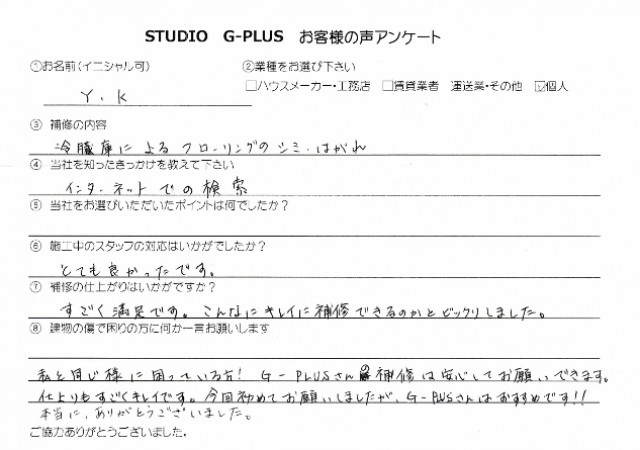 STUDIO G-PLUS お客様の声アンケート
①お名前(イニシャル可) ②業種をお選び下さい
Y.K □ハウスメーカー・工務店 □賃貸業者 運送業・その他 ☑個人
③ 補修の内容
冷蔵庫によるフローリングのシミ・はがれ
④ 当社を知ったきっかけを教えて下さい
インターネットでの検索
⑤ 当社をお選びいただいたポイントは何でしたか？
⑥ 施工中のスタッフの対応はいかがでしたか？
とても良かったです。
⑦ 補修の仕上がりはいかがですか？
すごく満足です。こんなにキレイに補修できるのかとビックリしました。
⑧ 建物の傷で困りの方に何か一言お願いします
私と同じ様に困っている方！G-PLUSさんの補修は安心してお願いできます。
仕上りもすごくキレイです。今回初めてお願いしましたが、G-PLUSさんはおすすめです!!
本当に、ありがとうございました。
ご協力ありがとうございました。